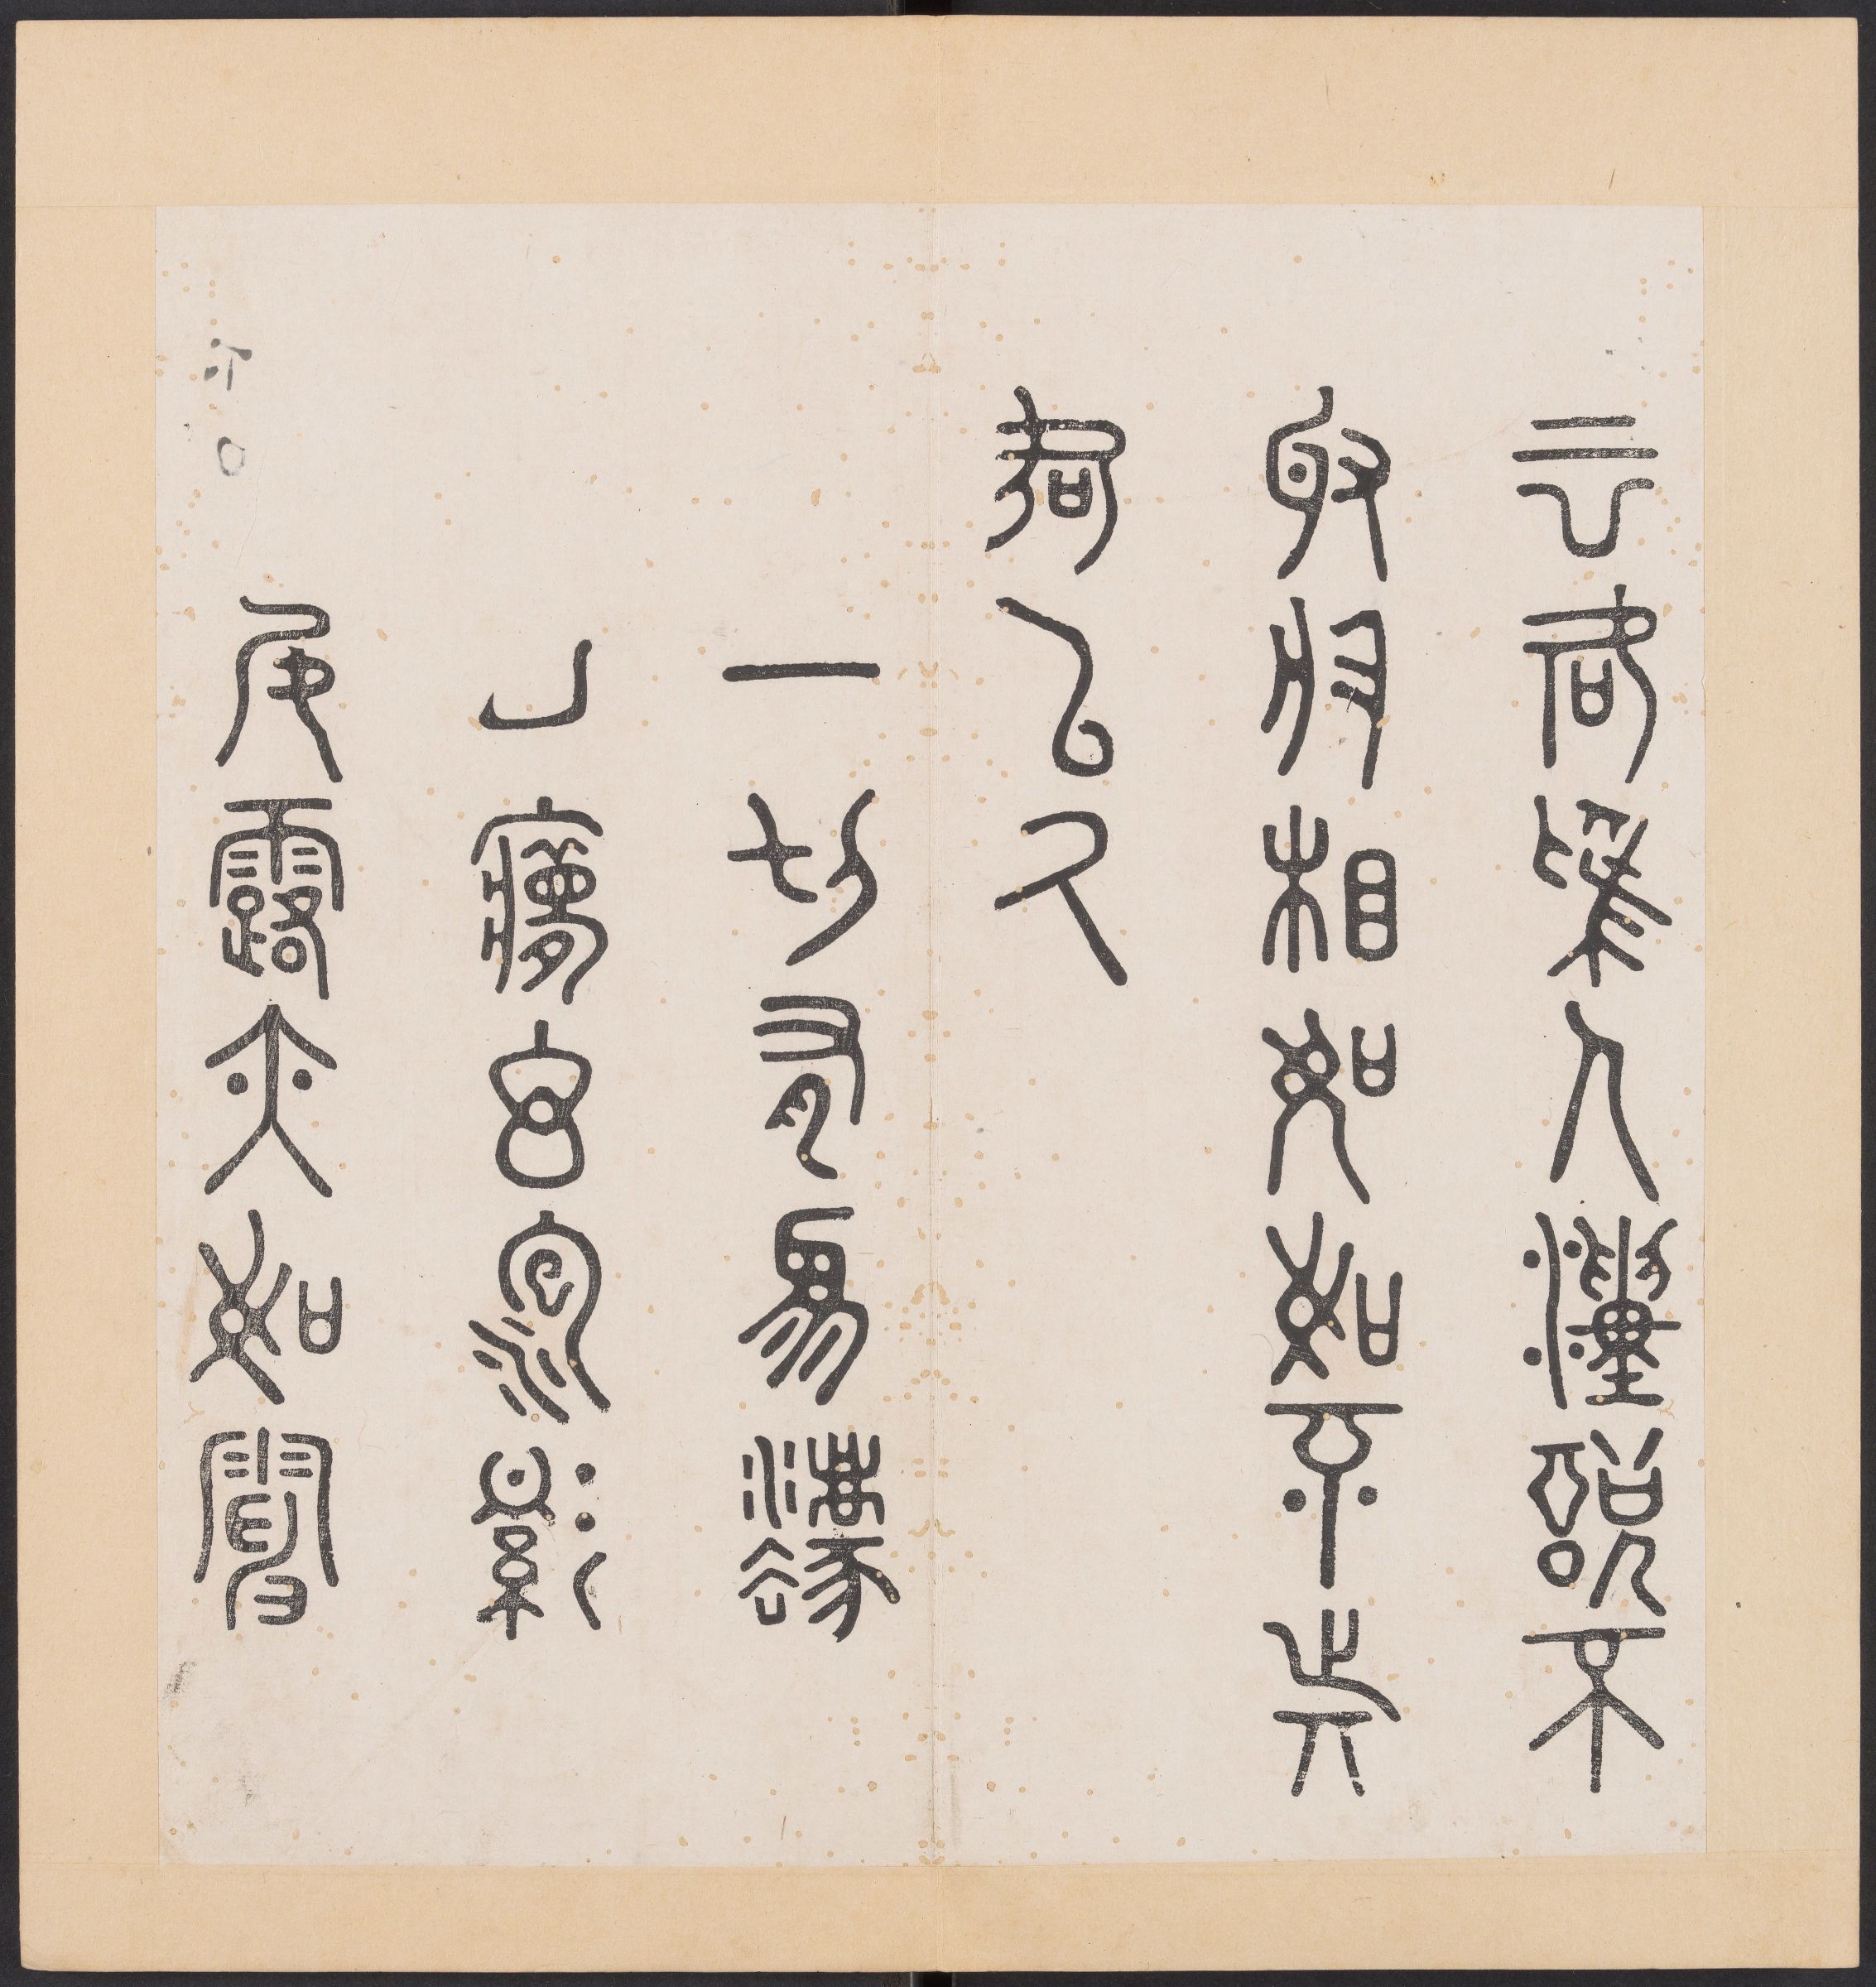 云何為人演說不
取於相如如不動
何以故
一切有為法
如夢幻泡影
如露亦如電